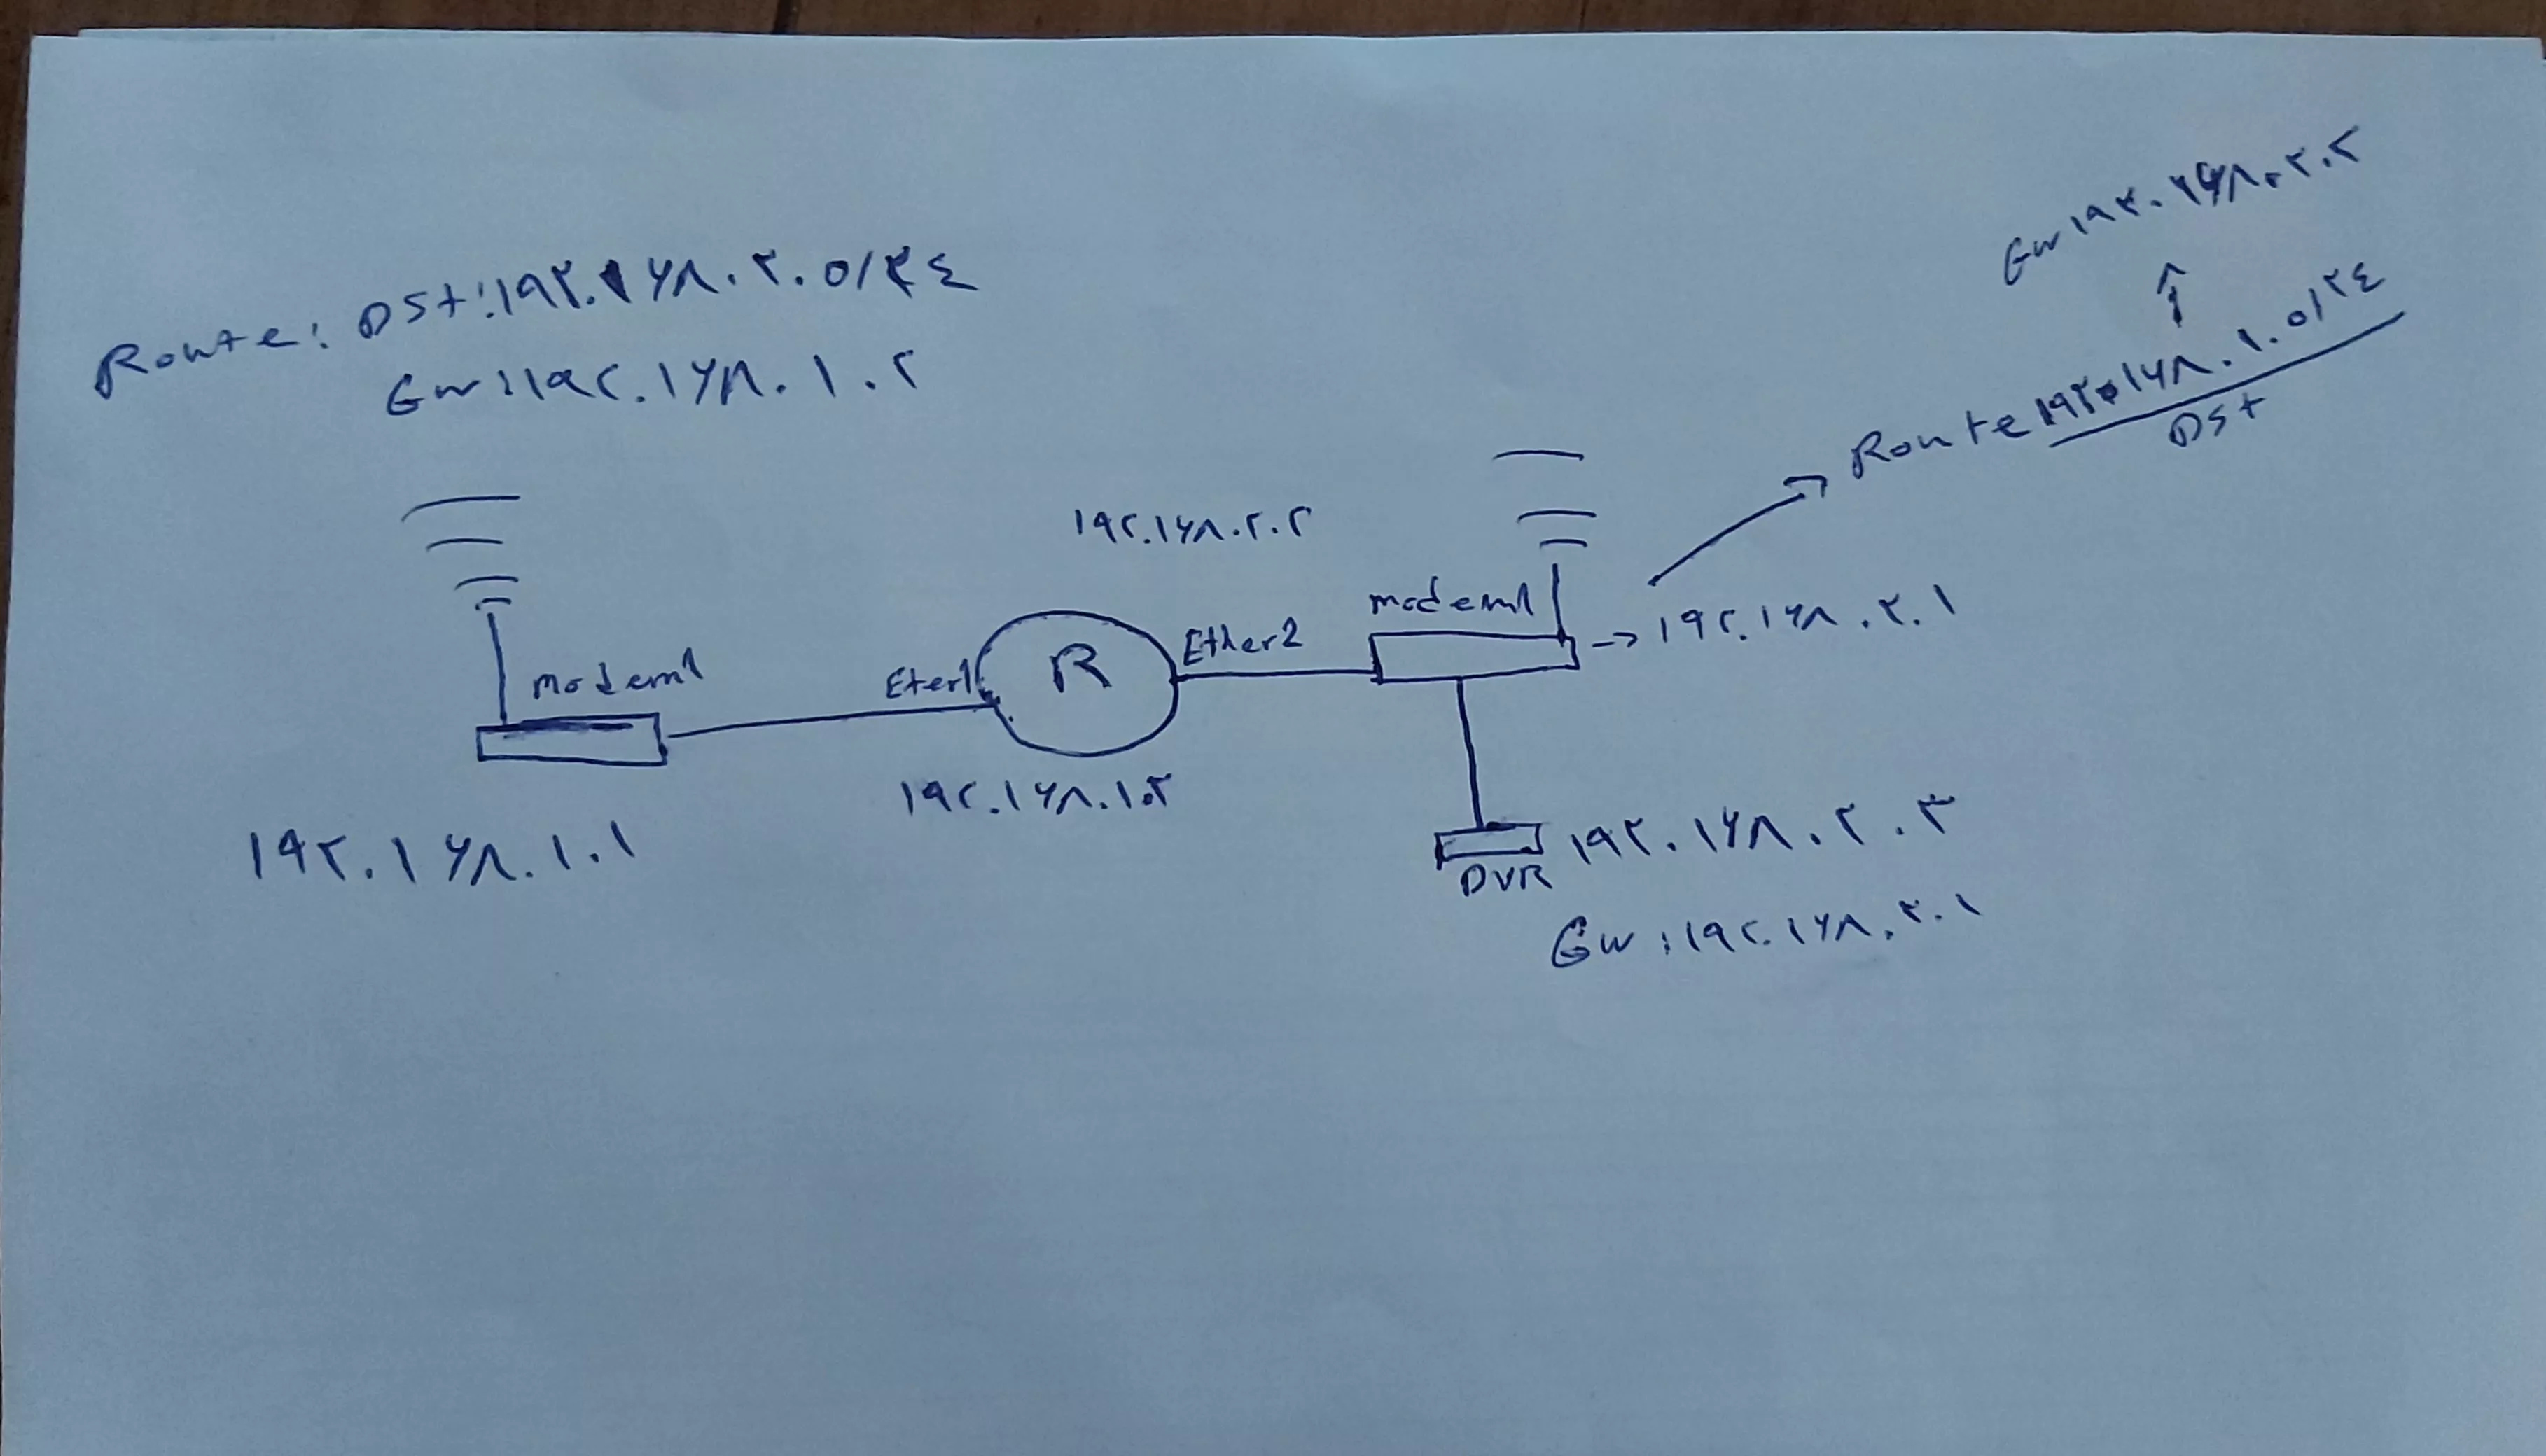 Route: Dst: ۱۹۲.۱۶۸.۲.۰/۲٤
Gw: ۱۹۲.۱۶۸.۱.۲
Gw ۱۹۲.۱۶۸.۲.۲
Route ۱۹۲.۱۶۸.۱.۰/۲٤
Dst
۱۹۲.۱۶۸.۲.۲
modem۱
→ ۱۹۲.۱۶۸.۲.۱
modem۱
Eter1
R
Ether2
۱۹۲.۱۶۸.۱.۲
۱۹۲.۱۶۸.۱.۱
DVR ۱۹۲.۱۶۸.۲.۳
Gw: ۱۹۲.۱۶۸.۲.۱